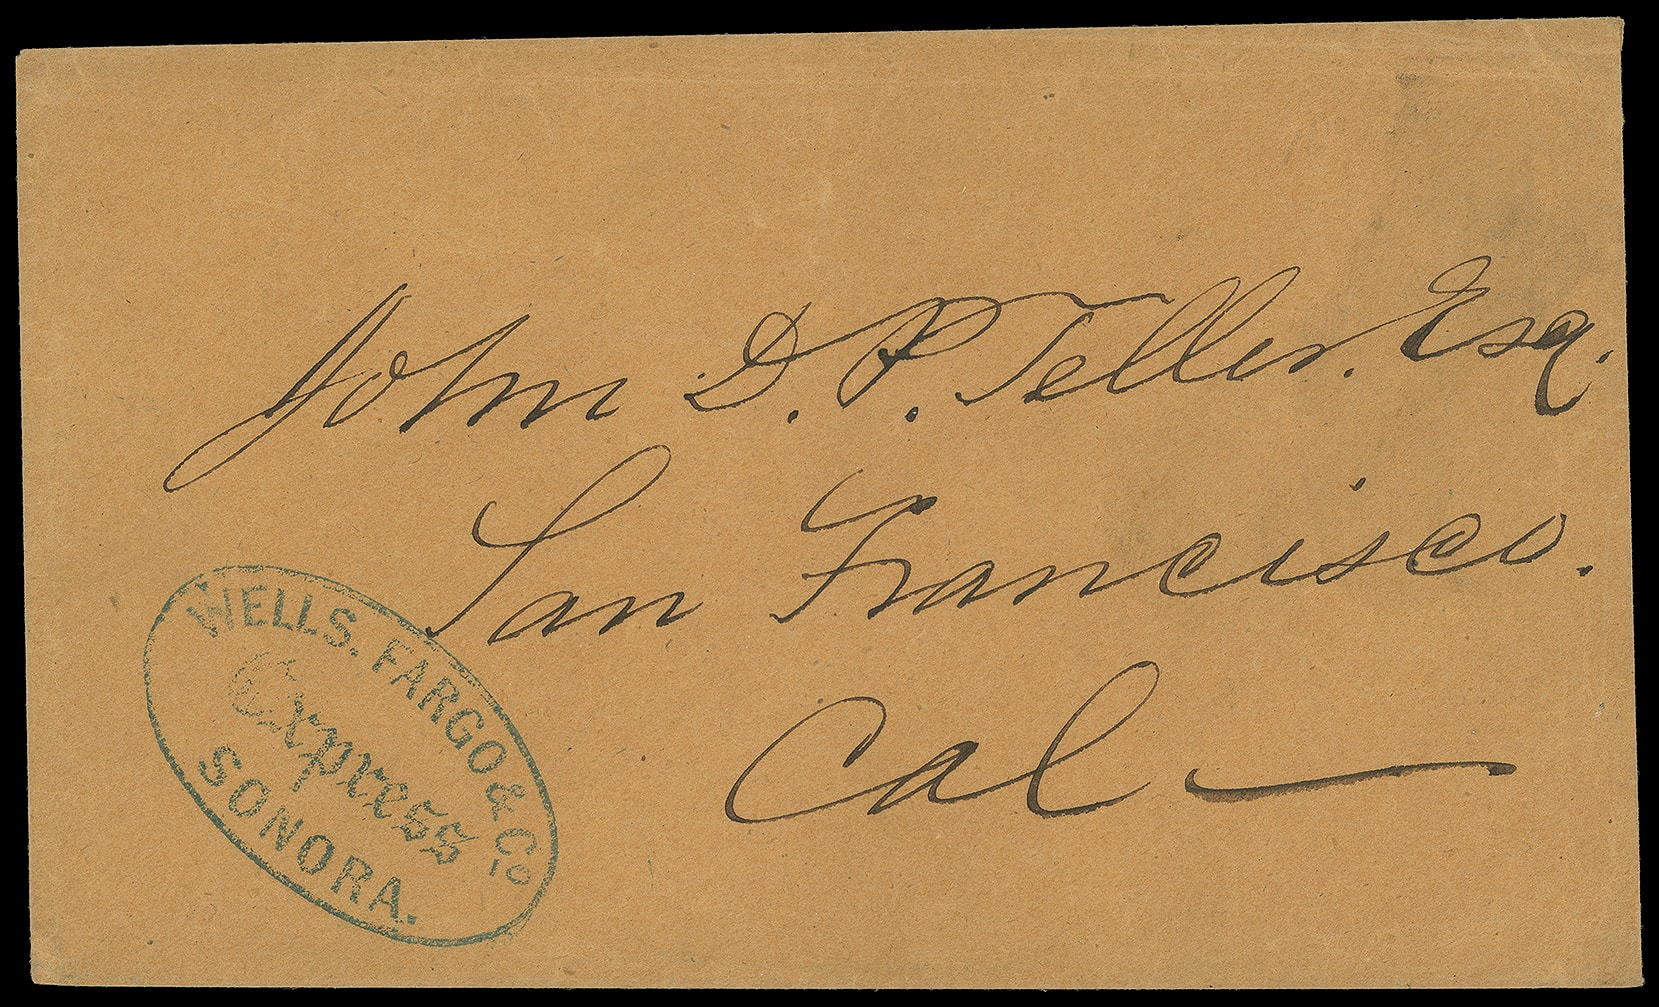 John D. P. Teller. Esq.
San Francisco.
Cal —
WELLS. FARGO & Co
Express
SONORA.